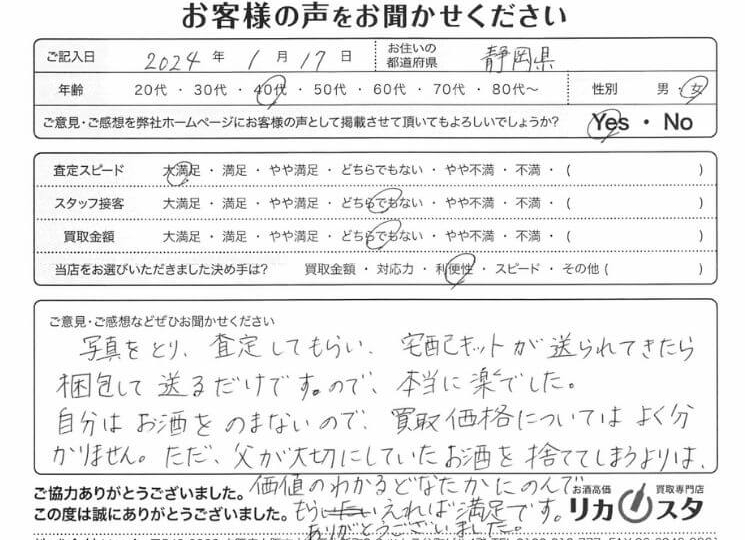 お客様の声をお聞かせください
ご記入日 2024 年 1 月 17 日 お住いの都道府県 静岡県
年齢 20代 ・ 30代 ・ 40代 ・ 50代 ・ 60代 ・ 70代 ・ 80代～ 性別 男 ・ 女
ご意見・ご感想を弊社ホームページにお客様の声として掲載させて頂いてもよろしいでしょうか? Yes ・ No
査定スピード 大満足 ・ 満足 ・ やや満足 ・ どちらでもない ・ やや不満 ・ 不満 ・ ( )
スタッフ接客 大満足 ・ 満足 ・ やや満足 ・ どちらでもない ・ やや不満 ・ 不満 ・ ( )
買取金額 大満足 ・ 満足 ・ やや満足 ・ どちらでもない ・ やや不満 ・ 不満 ・ ( )
当店をお選びいただきました決め手は? 買取金額 ・ 対応力 ・ 利便性 ・ スピード ・ その他 ( )
ご意見・ご感想などぜひお聞かせください
写真をとり、査定してもらい、宅配キットが送られてきたら
梱包して送るだけです。ので、本当に楽でした。
自分はお酒をのまないので、買取価格についてはよく分
かりません。ただ、父が大切にしていたお酒を捨ててしまうよりは、
価値のわかるどなたかにのんで
もらえれば満足です。
ありがとうございました。
ご協力ありがとうございました。
この度は誠にありがとうございました。
お酒高価 買取専門店
リカスタ